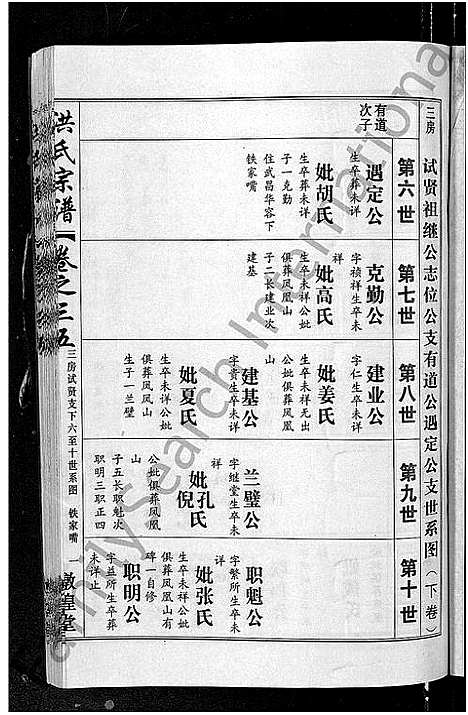 三房
试贤祖继公志位公支有道公遇定公支世系图(下卷)
第六世
第七世
第八世
第九世
第十世
有道
次子
遇定公
生卒葬未详
妣胡氏
生卒葬未详
子一克勤
住武昌华容下
铁家嘴
克勤公
字祯祥生卒未
祥
妣高氏
生卒未祥公妣
俱葬凤凰山
子二长建业次
建基
建业公
字仁生卒未详
妣姜氏
生卒未祥无出
公妣俱葬凤凰
山
建基公
字贵生卒未详
妣夏氏
生卒未详公妣
俱葬凤凰山
生子一兰璧
兰璧公
字继堂生卒未
祥
妣孔氏
倪
公妣俱葬凤凰
山
子五长职魁次
职明三职正四
职魁公
字繁所生卒未
祥
妣张氏
生卒未祥公妣
俱葬凤凰山有
碑一自修
职明公
字兰所生卒葬
未详止
洪氏宗谱
卷之三五
三房试贤支下六至十世系图
铁家嘴
一
敦皇堂
FamilySearch International